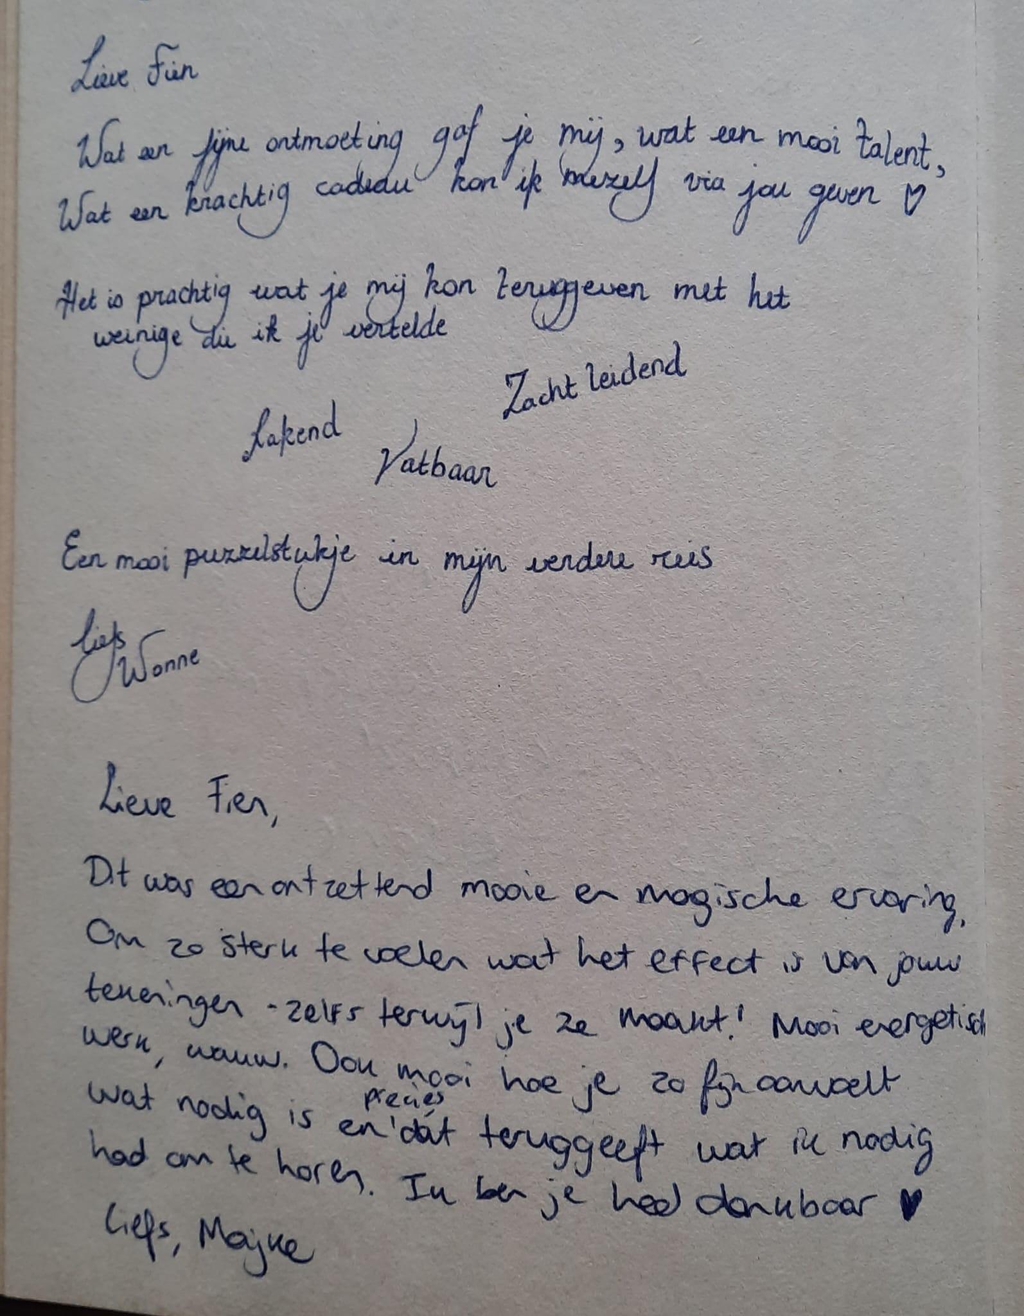 Lieve Fien
Wat een fijne ontmoeting gaf je mij, wat een mooi talent,
Wat een krachtig cadeau kon ik mezelf via jou geven ♡
Het is prachtig wat je mij kon teruggeven met het
weinige die ik je vertelde
Zacht leidend
Lakend
Vatbaar
Een mooi puzzelstukje in mijn verdere reis
Liefs
Wonne
Lieve Fien,
Dit was een ontzettend mooie en magische ervaring.
Om zo sterk te voelen wat het effect is van jouw
tekeningen - zelfs terwijl je ze maakt! Mooi energetisch
werk, wauw. Ook mooi hoe je zo fijn aanvoelt
wat nodig is en precies dát teruggeeft wat ik nodig
had om te horen. Ik ben je heel dankbaar ♥
Liefs, Majke